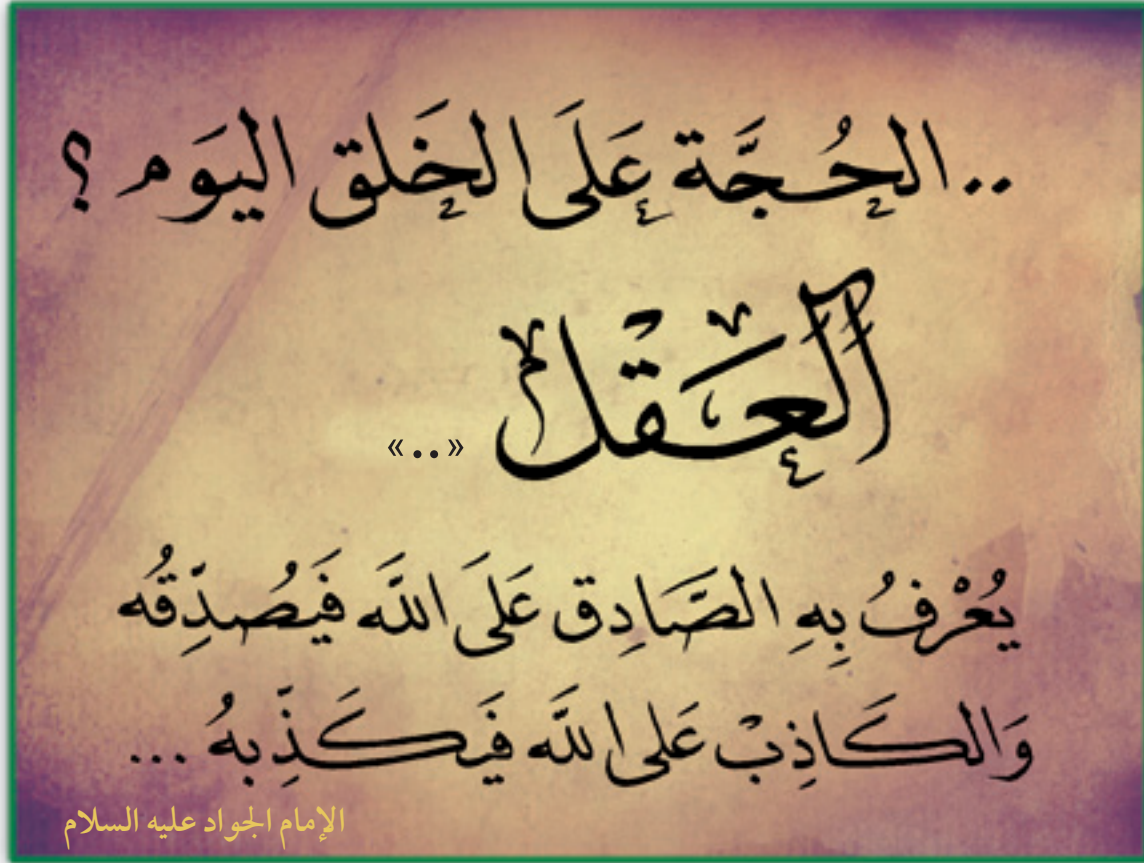 ..الحُجَّة عَلَى الخَلق اليَوم ؟
العَقْل «..»
يُعْرفُ بِهِ الصَّادِق عَلَى اللَّه فَيُصَدِّقُه
وَالكَاذِبْ عَلى اللَّه فَيَكَذِّبهُ ...
الإمام الجواد عليه السلام